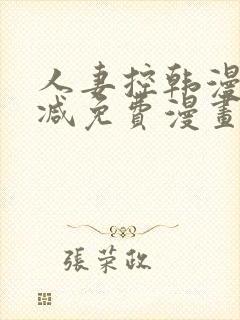 人妻控韩漫
减免費漫畫
張荣政